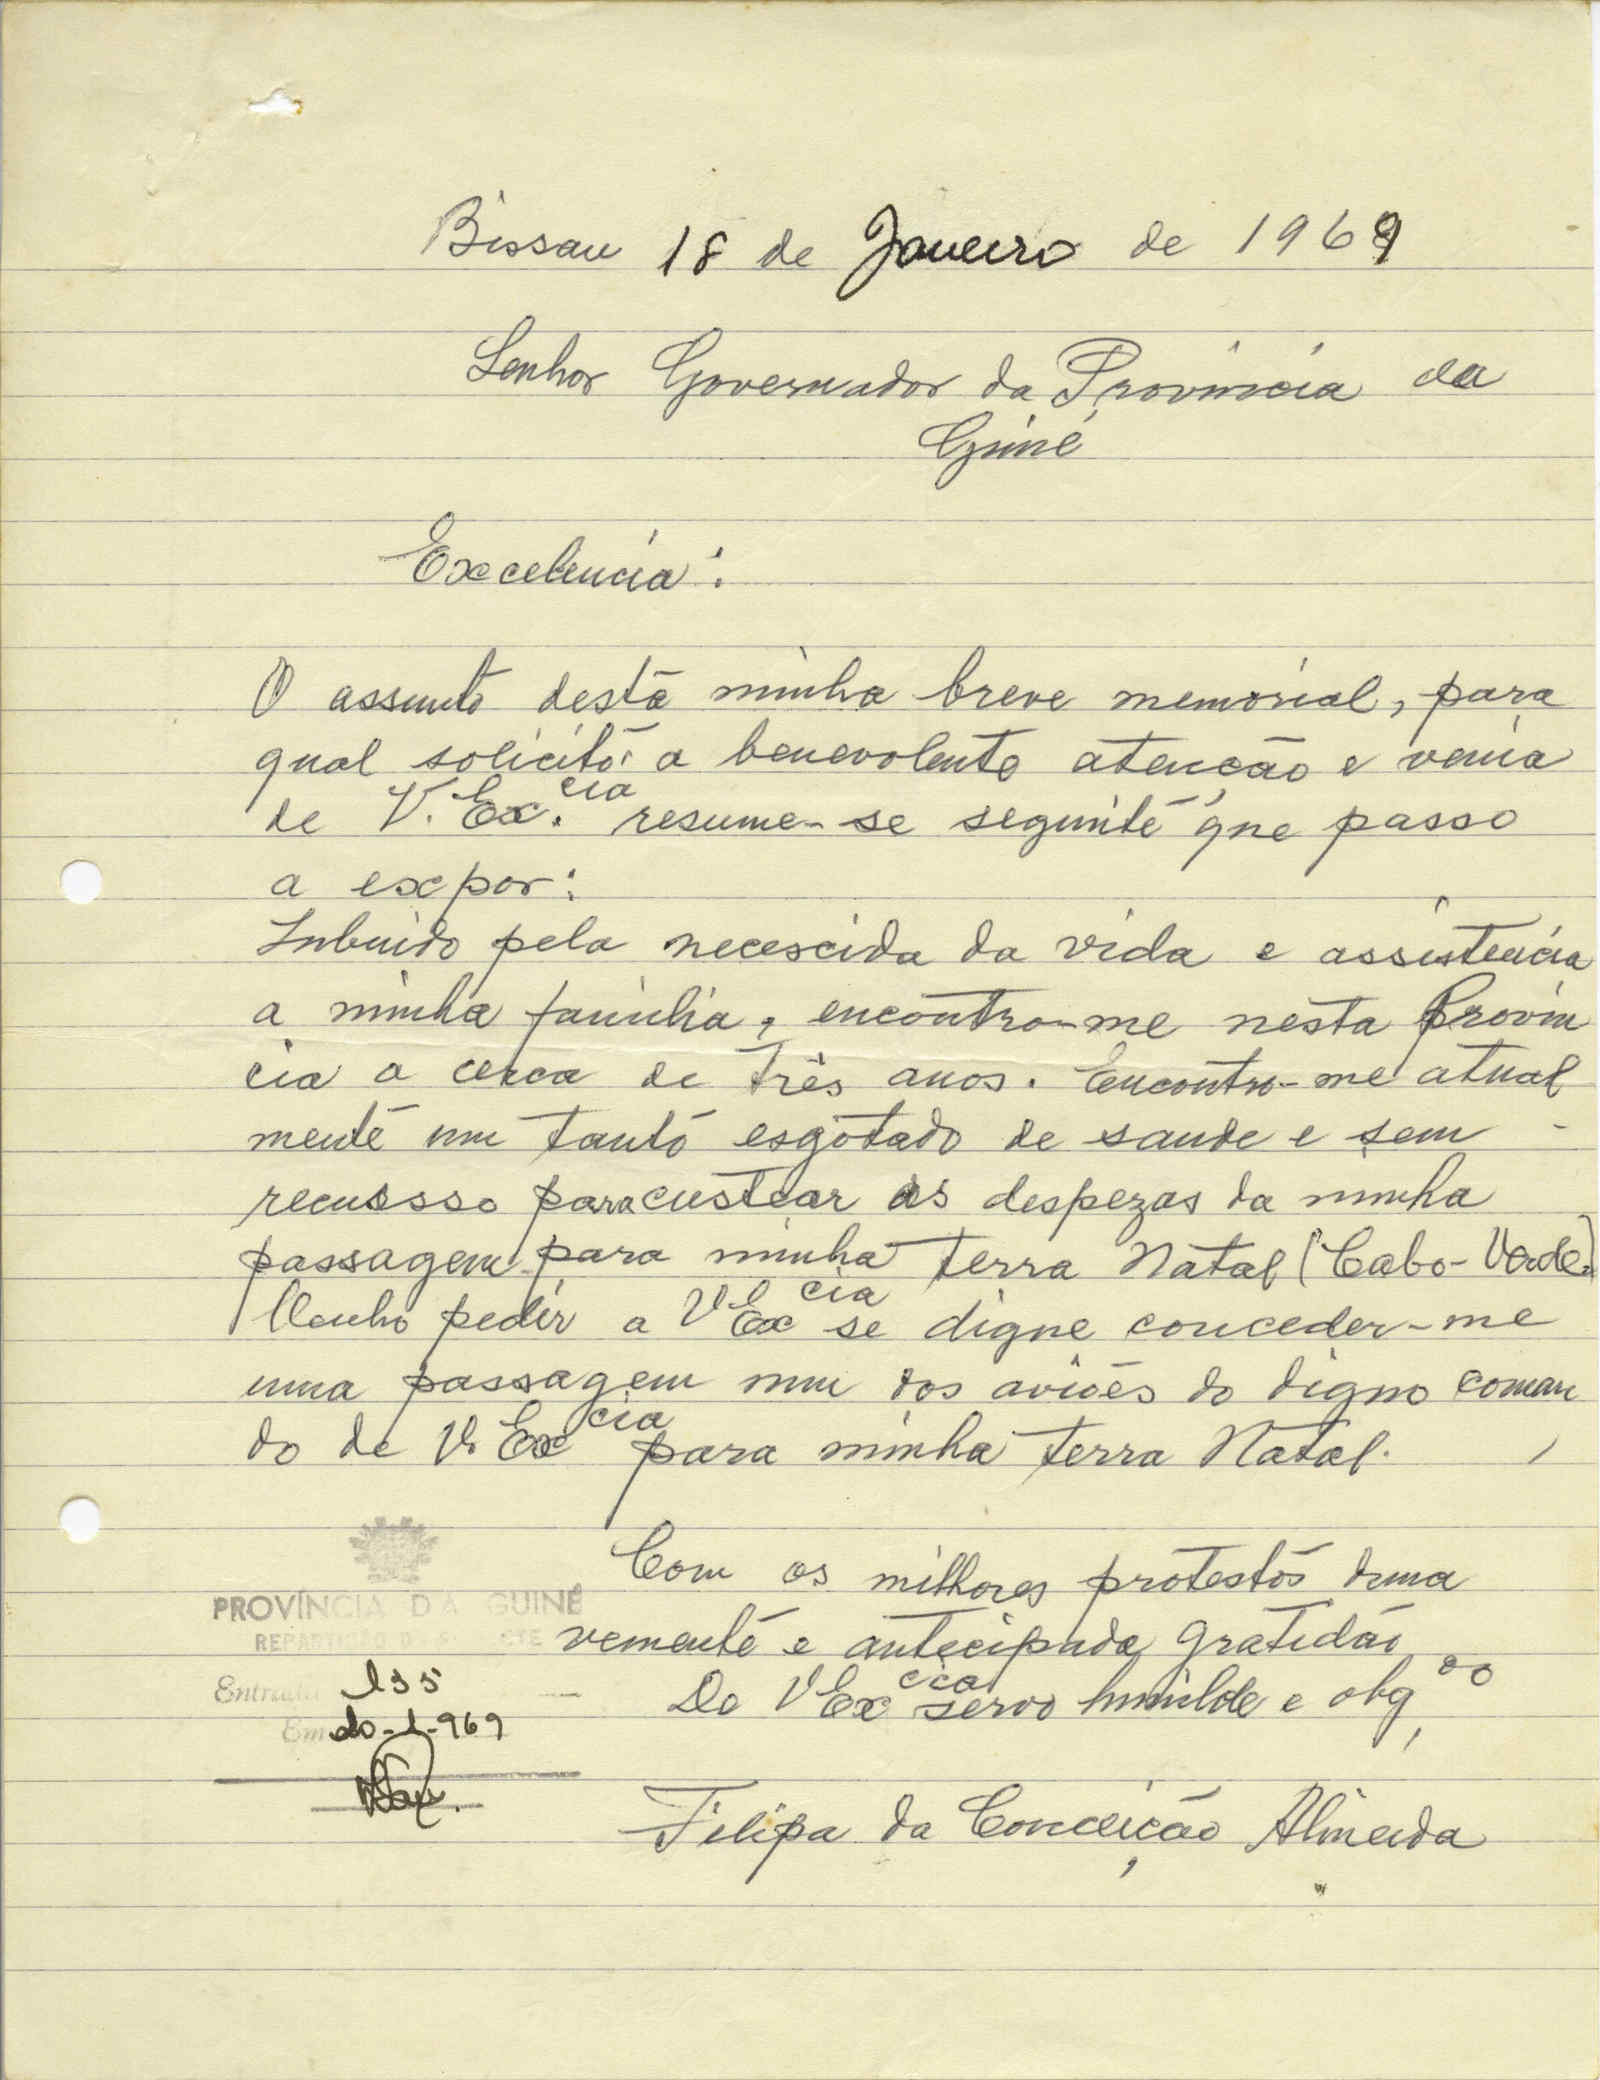 Bissau 18 de Janeiro de 1969
Senhor Governador da Província da
Guiné
Excelencia:
O assunto desta minha breve memorial, para
qual solicito a benevolente atenção e venia
de V. Ex.cia resume-se seguinte que passo
a expor:
Inbuido pela necescida da vida e assistencia
a minha familia, encontro-me nesta Provin
cia a cerca de três anos. Encontro-me atual
mente um tanto esgotado de saude e sem
recursso para custear as despezas da minha
passagem para minha terra Natal (Cabo-Verde)
Venho pedir a V Excia se digne conceder-me
uma passagem num dos aviões do digno coman
do de V. Excia para minha terra Natal.
Com os milhores protestos duma
vemente e antecipada gratidão
De V Excia servo humilde e obgdo
Filipa da Conceição Almeida
PROVÍNCIA DA GUINÉ
REPARTIÇÃO DO GABINETE
Entrada 135
Em 20-1-969